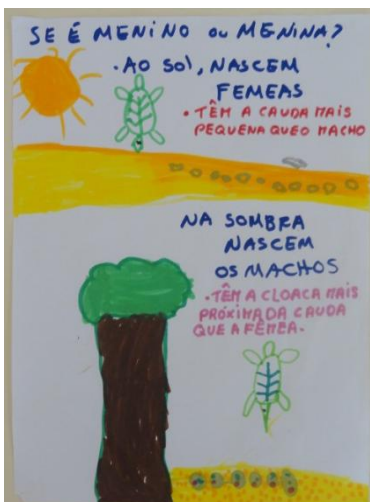 SE É MENINO OU MENINA?
• AO SOL, NASCEM
FEMEAS
• TÊM A CAUDA MAIS
PEQUENA QUE O MACHO
NA SOMBRA
NASCEM
OS MACHOS
• TÊM A CLOACA MAIS
PRÓXIMA DA CAUDA
QUE A FÊMEA.